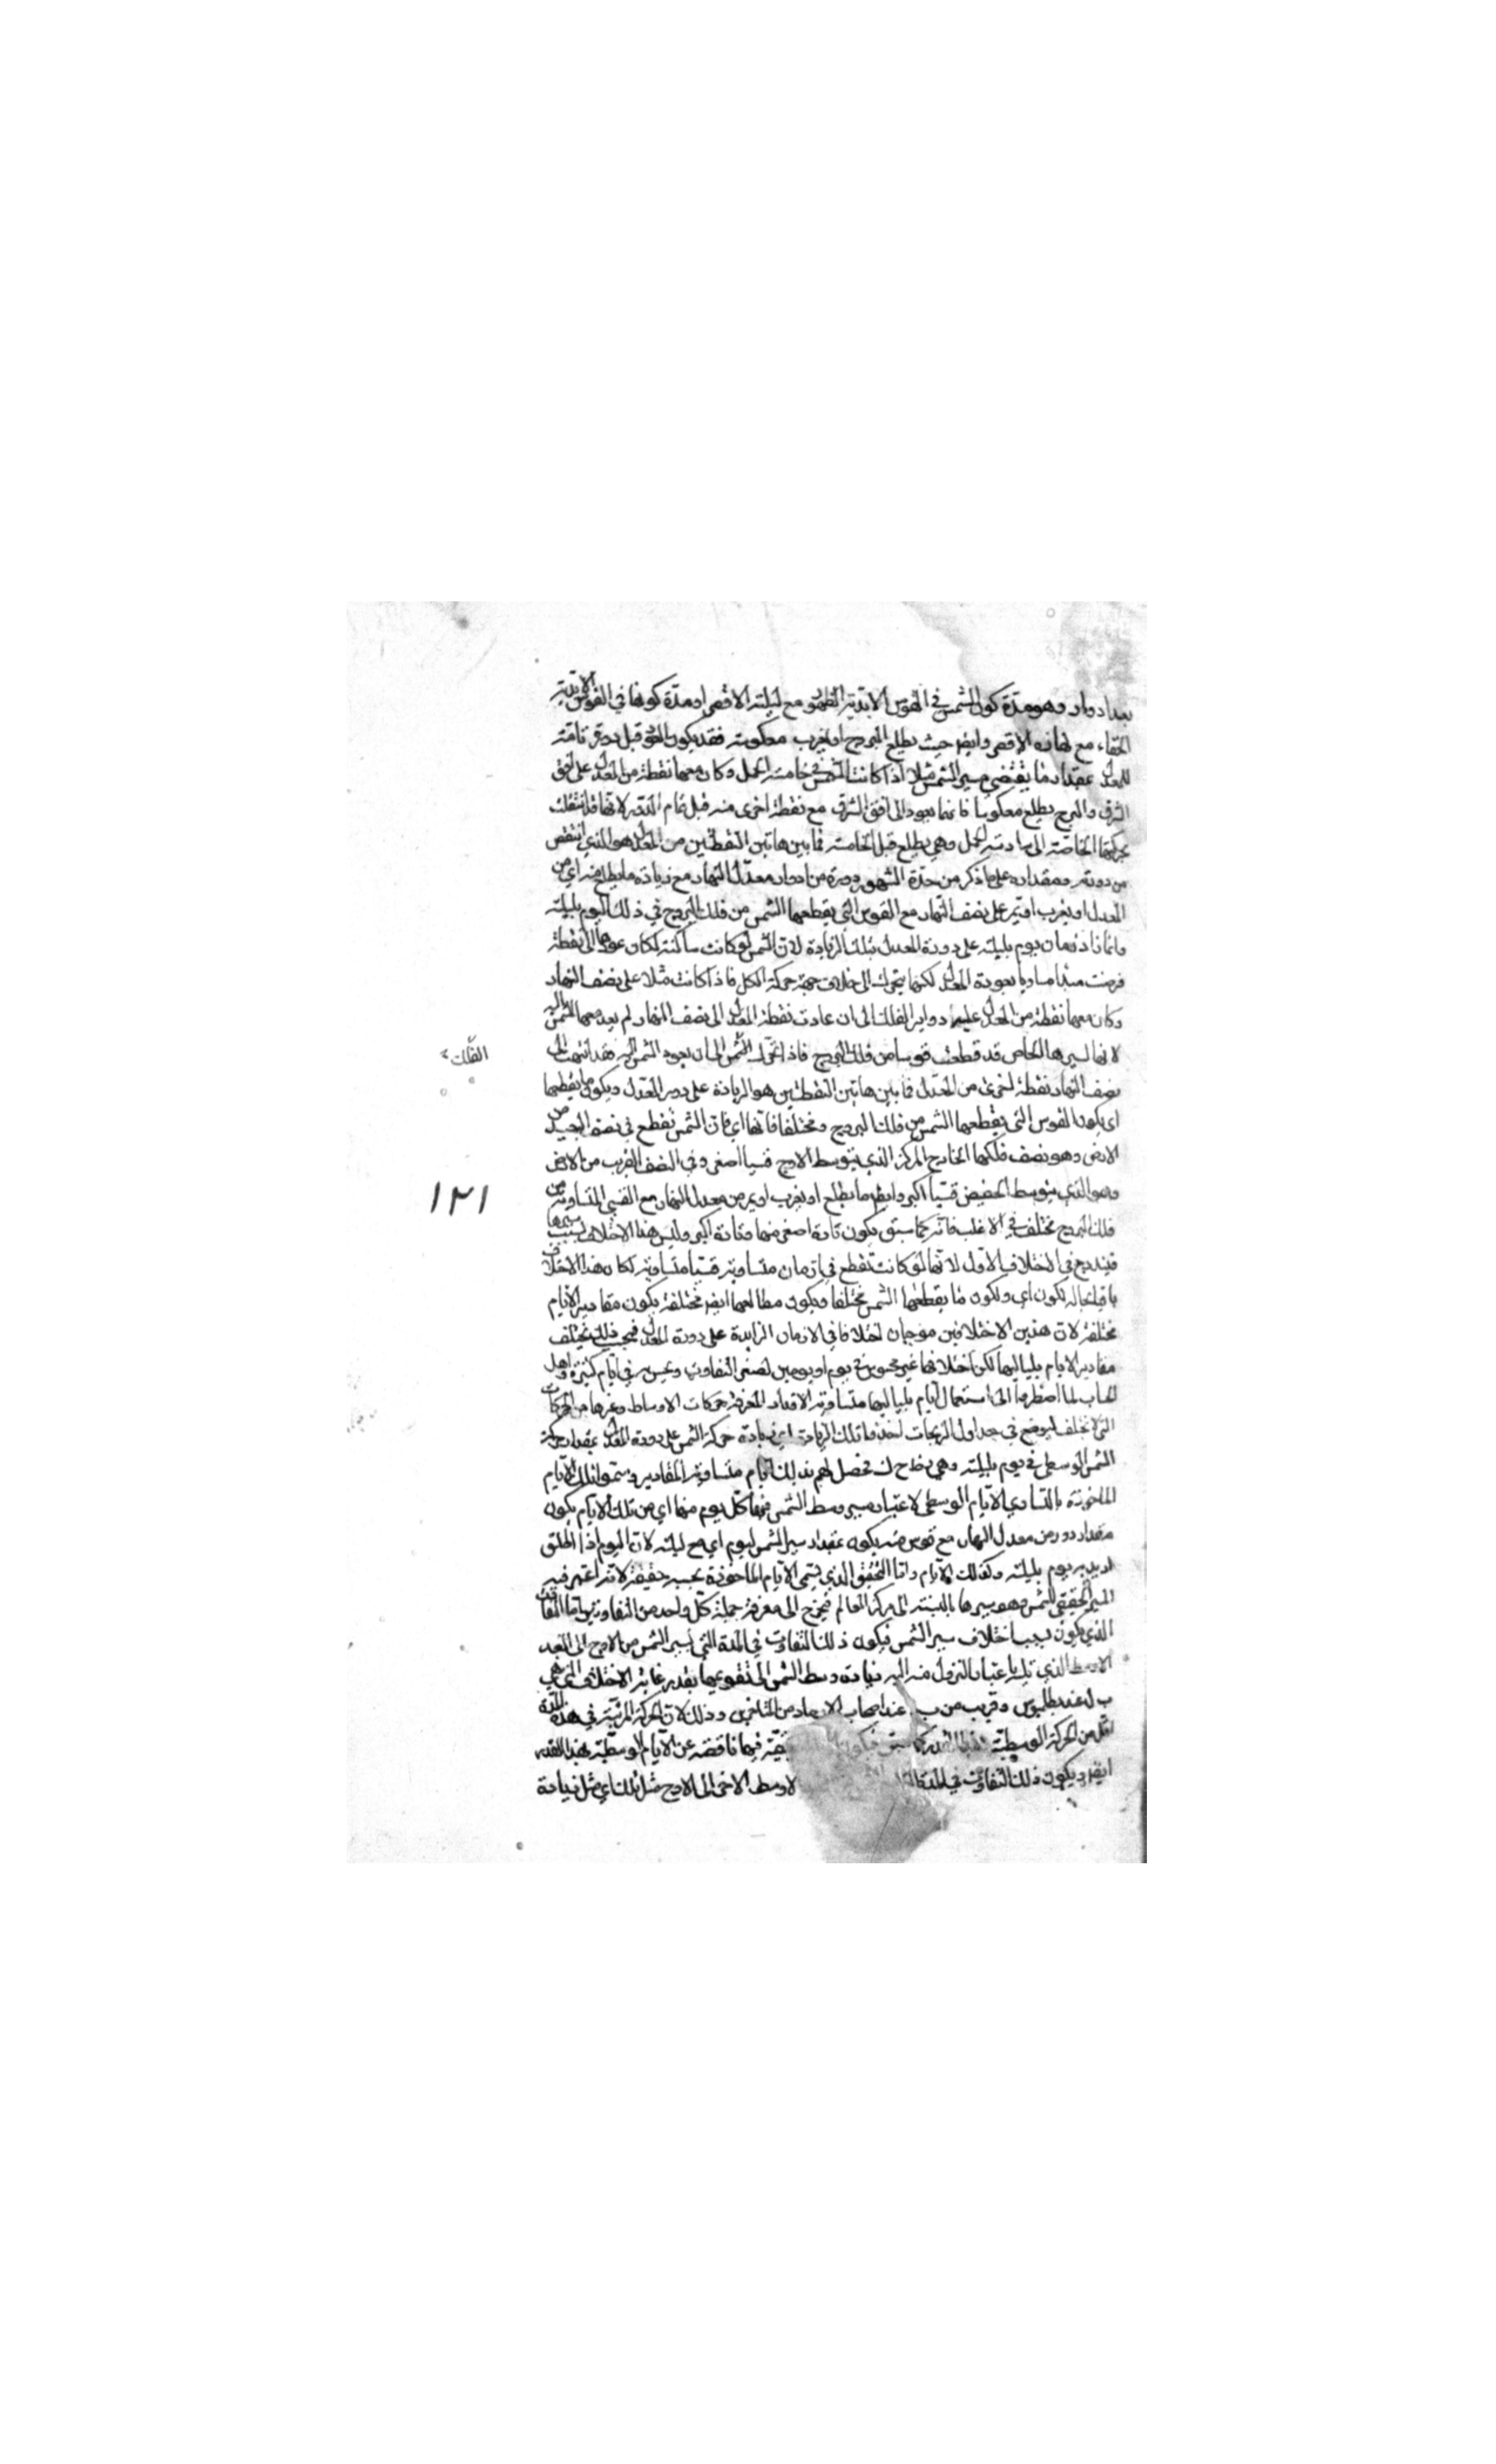 بعد ادوار وهو مدة كون الشمس في القوس الابدية الظهور مع ليلته الاقصر او مدة كونها في القوس الابدية
الخفاء مع نهاره الاقصر وايضا حيث يطلع البروج او يغرب معكوسة فقد يكون العود قبل دورة تامة
للمعدل بمقدار ما يقتضي مسير الشمس مثلا اذا كانت الشمس في خامسة الحمل وكان معها نقطة من المعدل على افق
الشرق والبرج يطلع معكوسا فانها تعود الى افق الشرق مع نقطة اخرى منه قبل تمام الدورة لانها قد انتقلت
بحركتها الخاصة الى سادسة الحمل وهي يطلع قبل الخامسة فما بين هاتين النقطتين من المعدل هو الذي انتقص
من دورته ومقداره على ما ذكر من حده المشهور دورة من ادوار معدل النهار مع زيادة ما يطلع منه اي من
المعدل او يغرب او يمر على نصف النهار مع القوس التي يقطعها الشمس من فلك البروج في ذلك اليوم بليلته
وانما زاد زمان يوم بليلته على دورة المعدل بتلك الزيادة لان الشمس لو كانت ساكنة لكان عودها الى نقطة
فرضت مبدأ مساويا بعودة المعدل لكنها يتحرك الى خلاف جهة حركة الكل فاذا كانت مثلا على نصف النهار
وكان معها نقطة من المعدل عليه دواير الفلك الى ان عادت نقطة المعدل الى نصف النهار لم يعد معها الشمس اليه
لانها لسيرها الخاص قد قطعت قوسا من فلك البروج فاذا تحرك الشمس الى ان يعود الشمس اليه فقد انتهت الى
الفلك
نصف النهار نقطة اخرى من المعدل فما بين هاتين النقطتين هو الزيادة على دور المعدل ويكون ما يقطعها
اي يكون القوس التي يقطعها الشمس من فلك البروج مختلفا فانها اي فان الشمس تقطع في نصف البعيد من
الارض وهو نصف فلكها الخارج المركز الذي يتوسط الاوج قسيا اصغر وفي النصف القريب من الارض
وهو الذي يتوسط الحضيض قسيا اكبر وايضا ما يطلع او يغرب او يمر من معدل النهار مع القسي المتساوية من
١٢١
فلك البروج مختلف في الاغلب فانه كما سبق يكون تارة اصغر منها وتارة اكبر وليس هذا الاختلاف بسبب سيرها
فيندرج في الاختلاف الاول لانها لو كانت تقطع في ازمان متساوية قسيا متساوية لكان هذا الاختلاف
باقيا بحاله لكون اي ولكون ما يقطعها الشمس مختلفا ويكون مطالعها ايضا مختلفة يكون مقادير الايام
مختلفة لان هذين الاختلافين موجبان اختلافا في الازمان الزايدة على دورة المعدل فبحسب ذلك تختلف
مقادير الايام بلياليها لكن اختلافها غير محسوس في يوم او يومين لصغر التفاوت ويحس به في ايام كثيرة واهل
الحساب لما اضطروا الى استعمال ايام بلياليها متساوية الاقدار لمعرفة حركات الاوساط وغيرها من الحركات
التي لا تختلف ليوضع في جداول الزيجات اخذوا تلك الزيادة اي زيادة حركة الشمس على دورة المعدل بمقدار حركة
الشمس الوسطى في يوم بليلته وهي نط ح ك فحصل لهم بذلك ايام متساوية المقادير وسموا تلك الايام
الماخوذة بالتساوي الايام الوسطى لاعتبار مسير وسط الشمس فيها فكل يوم منها اي من تلك الايام يكون
مقدار دور من معدل النهار مع قوس منه يكون بمقدار سير الشمس ليوم اي مع ليلته لان اليوم اذا اطلق
اريد به يوم بليلته وكذلك الايام واما الحقيقي الذي يسمى الايام الماخوذة بحسبه حقيقة لانه اعتبر فيه
السير الحقيقي للشمس وهو سيرها بالنسبة الى مركز العالم فيحتاج الى معرفة جملة كل واحد من التفاوتين اما التفاوت
الذي يكون بسبب اختلاف سير الشمس فيكون ذلك التفاوت في المدة التي لسير الشمس من الاوج الى البعد
الاوسط الذي يليه باعتبار النزول منه اليه زيادة وسط الشمس الى تقويمها بقدر غاية الاختلاف التي هي
عند بطلميوس وقريب من عند اصحاب الارصاد من المتاخرين وذلك لان الحركة المرئية في هذه المدة
اقل من الحركة الوسطية بهذا القدر كما سبق فيكون فيها ناقصة عن الايام الوسطية بهذا القدر
ايضا ويكون ذلك التفاوت في المدة الاوسط الاخر الى الاوج مثل ذلك اي مثل زيادة